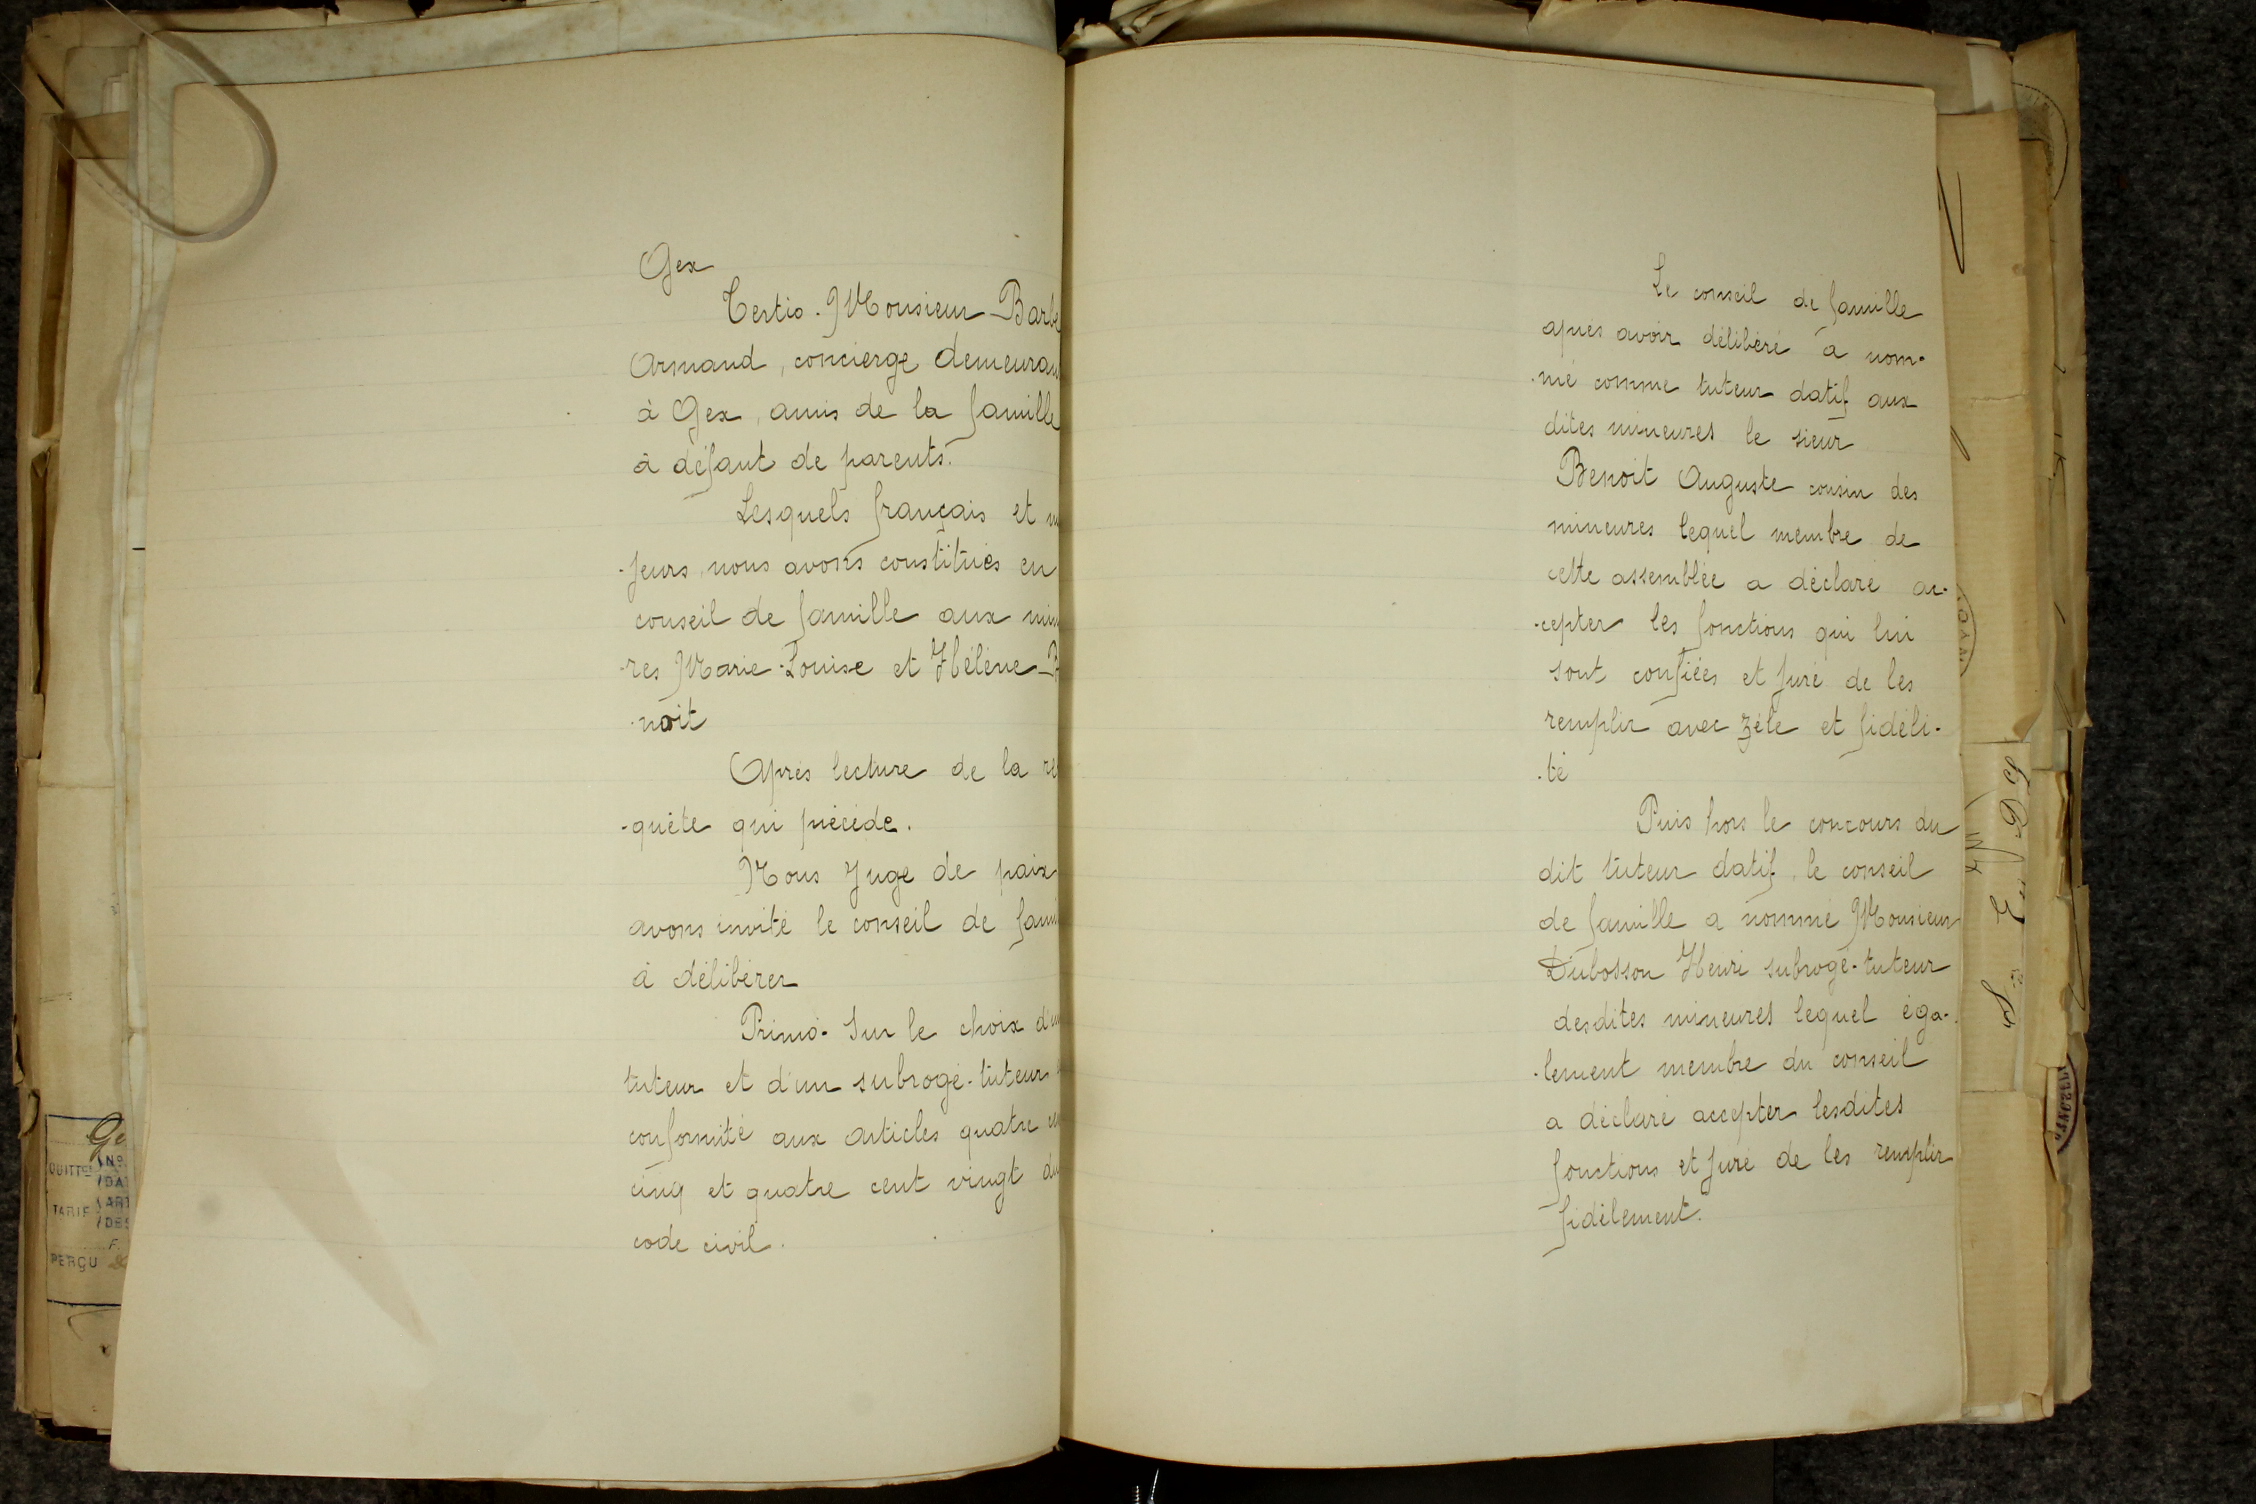 Gex
Tertio. Monsieur Barbe
Armand, concierge demeuran
à Gex, amis de la famille
à défaut de parents.
Lesquels français et m
-jeurs, nous avons constitués en
conseil de famille aux min
-res Marie-Louise et Hélène B
-noit
Après lecture de la re
-quête qui précède.
Nous Juge de paix
avons invité le conseil de fami
à délibérer
Primo- Sur le choix d'un
tuteur et d'un subrogé-tuteur
conformité aux articles quatre cen
cinq et quatre cent vingt du
code civil.
Le conseil de famille
après avoir délibéré à nom-
-mé comme tuteur datif aux
dites mineures le sieur
Benoit Auguste cousin des
mineures lequel membre de
cette assemblée a déclaré ac-
-cepter les fonctions qui lui
sont confiées et juré de les
remplir avec zèle et fidéli-
-té
Puis hors le concours du
dit tuteur datif, le conseil
de famille a nommé Monsieur
Dubosson Henri subrogé-tuteur
desdites mineures lequel éga-
-lement membre du conseil
a déclaré accepter lesdites
fonctions et juré de les remplir
fidèlement.
Ge
QUITTCE No
DA
TARIF ART
DES
F.
PERÇU